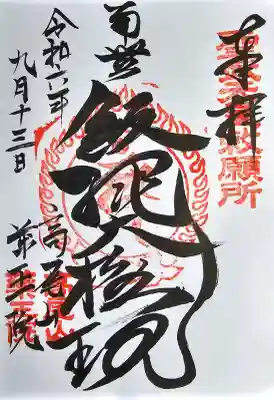 奉拝
勅願所
南無
飯縄大権現
高尾山
薬王院
令和六年
九月十三日